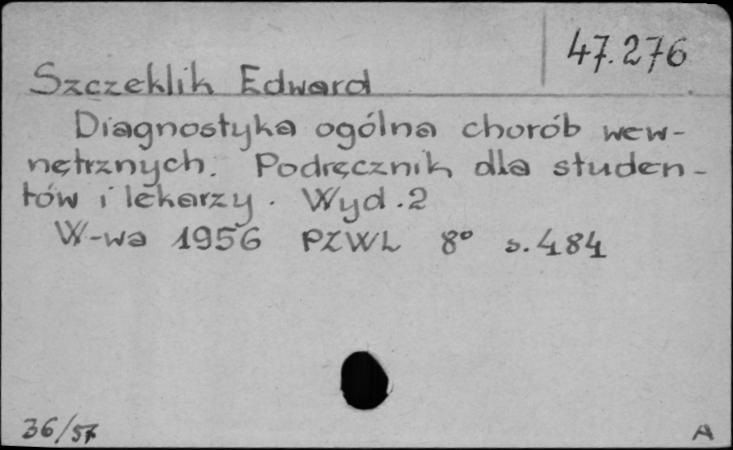 47.276
Szczeklik Edward
Diagnostyka ogólna chorób wew-
nętrznych. Podręcznik dla studen-
tów i lekarzy. Wyd.2
W-wa 1956 PZWL 8° s.484
36/57 A